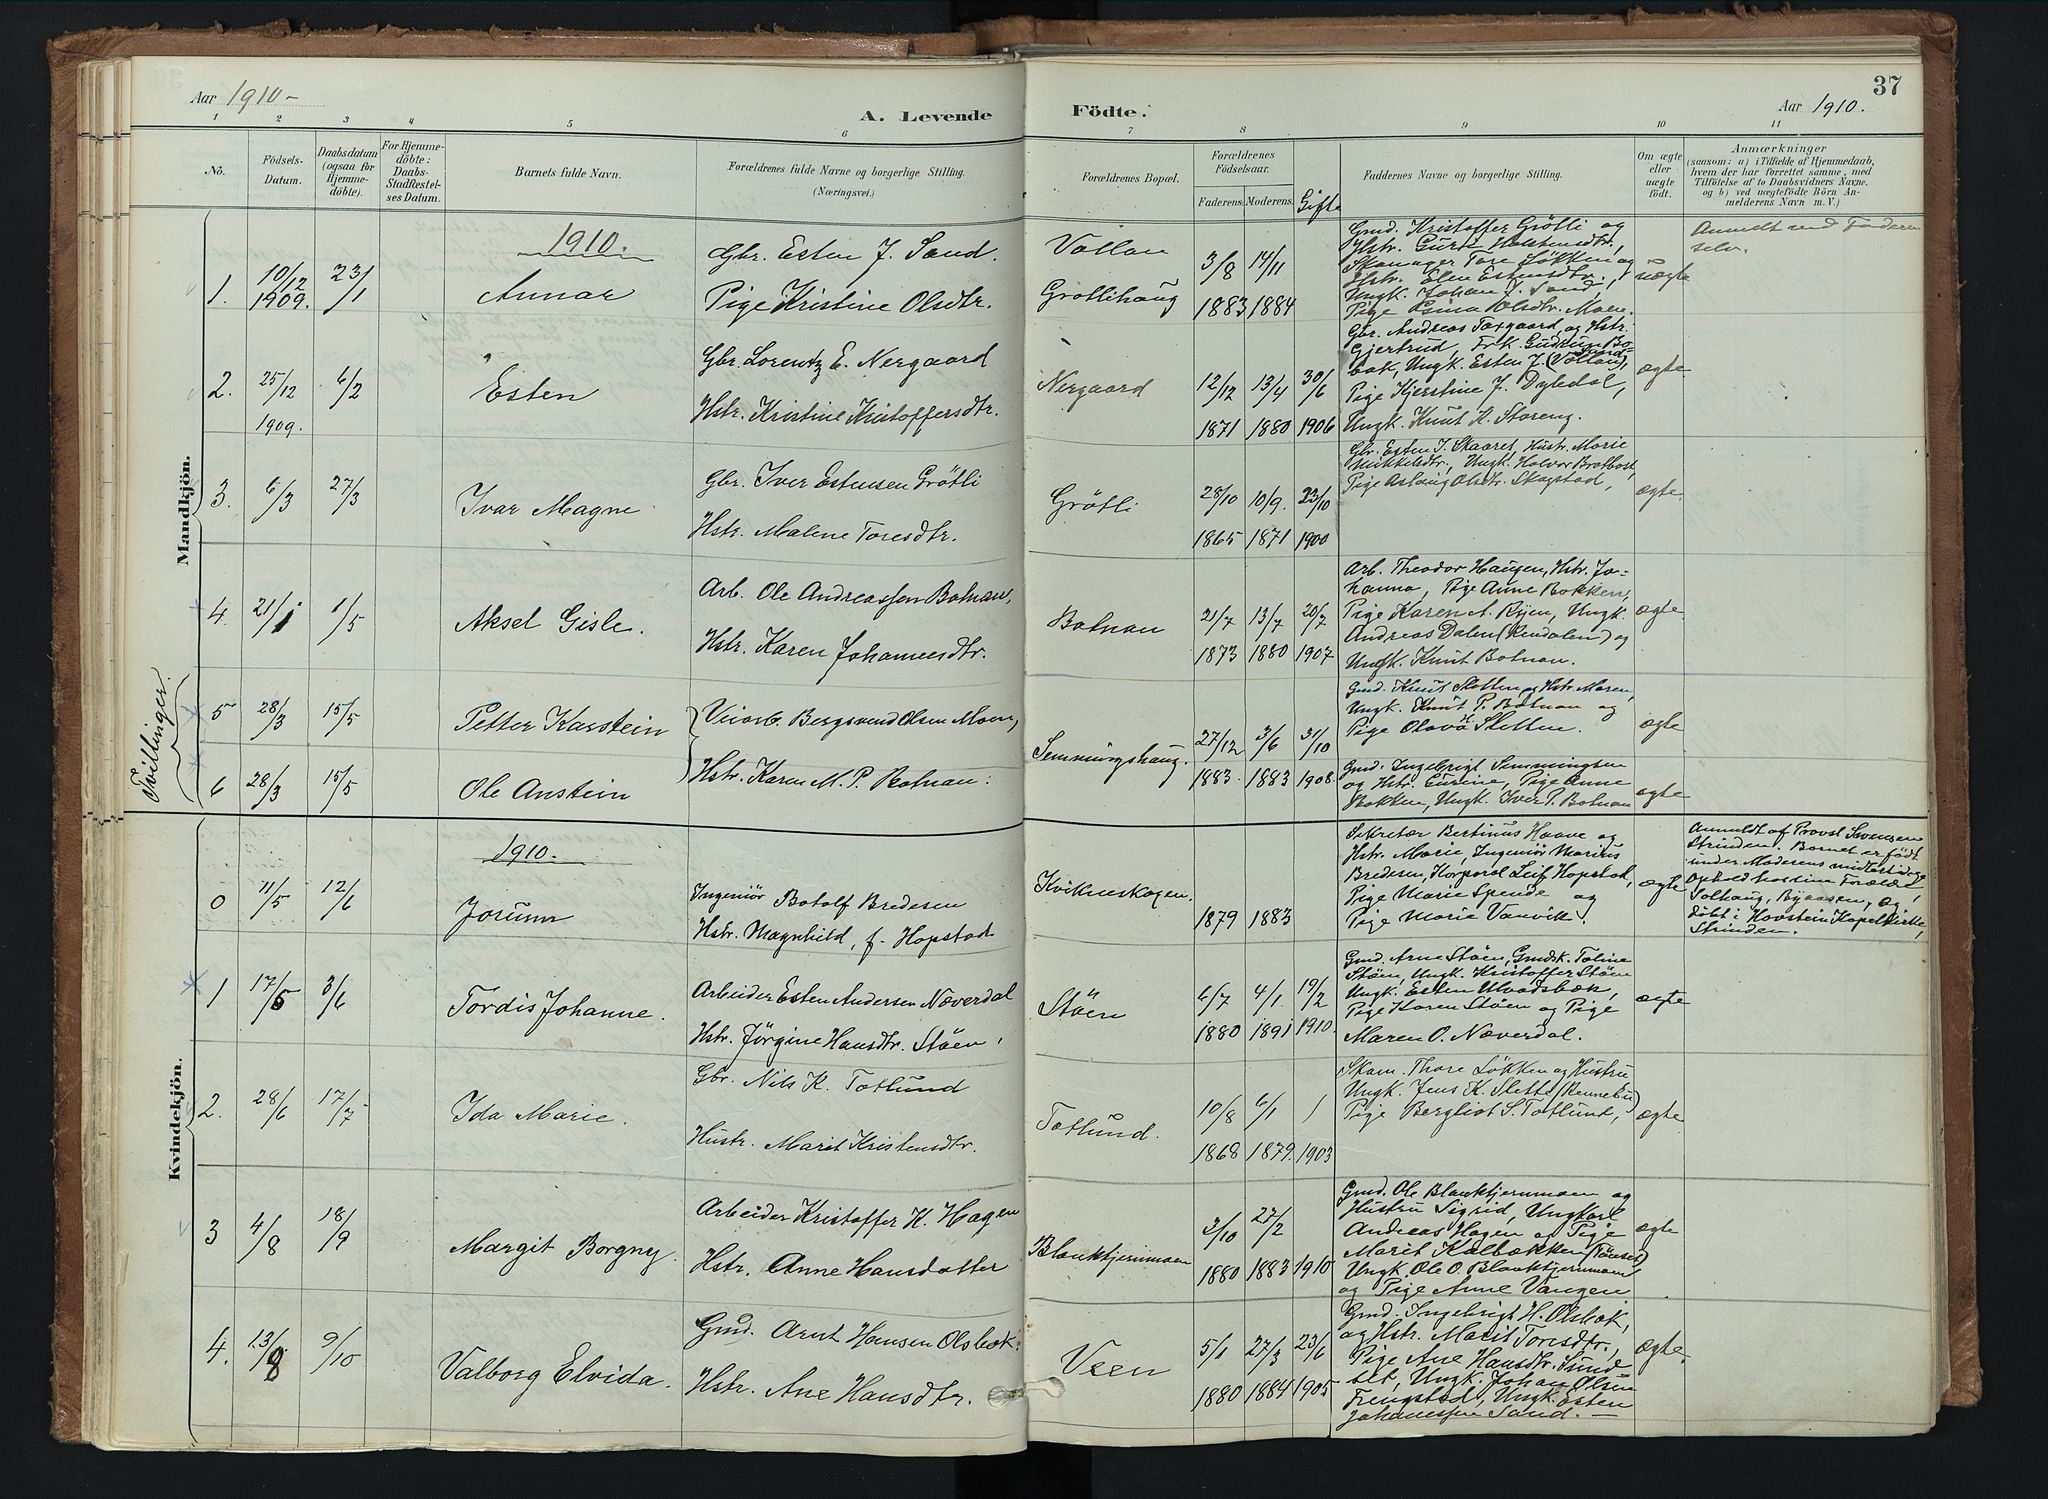 Aar 1910-
A. Levende
Födte.
37
Aar 1910.
1 2 3 4 5 6 7 8 9 10 11
No.
Födsels-
Datum.
Daabsdatum
(ogsaa for
Hjemme-
döbte).
For Hjemme-
döbte:
Daabs-
Stadfæstel-
ses Datum.
Barnets fulde Navn.
Forældrenes fulde Navne og borgerlige Stilling.
(Næringsvei.)
Forældrenes Bopæl.
Forældrenes
Födselsaar.
Faderens. Moderens. Gifte
Faddernes Navne og borgerlige Stilling.
Om ægte
eller
uægte
födt.
Anmærkninger
(saasom: a) i Tilfælde af Hjemmedaab,
hvem der har forrettet samme, med
Tilföielse af to Daabsvidners Navne,
og b) ved uægtefödte Börn An-
melderens Navn m. V.)
Mandkjön.
1910.
1. 10/12 1909. 23/1
Annar
Gbr. Esten J. Sand.
Pige Kristine Olsdtr.
Vollan
Gröttihaug
3/8 14/11
1883 1884
Gmd. Kristoffer Grötli og
Hstr. Guru Halstensdtr.,
Skomager Tore Løkken og
Hstr. Elen Estensdtr.,
Ungk. Johan J. Sand,
Pige Olsdtr. Moen.
uægte
Anmeldt ved Faderen
selv.
2. 25/12 1909. 6/2
Esten
Gbr. Lorentz E. Nergaard
Hstr. Kristine Kristoffersdtr.
Nergaard
12/12 13/4 30/6
1871 1880 1906
Gbr. Andreas Toxgaard, og Hstr.
Gjertrud, Frk. Gudrun Bo-
bak, Ungk. Esten J. Sand (Vollan),
Pige Kjerstine J. Dyledal,
Ungk. Knut K. Storeng.
ægte
3. 6/3 27/3
Ivar Magne
Gbr. Iver Estensen Grötli
Hstr. Malene Toresdtr.
Grötli
28/10 10/9. 23/10
1865 1871 1900
Gbr. Esten J. Skaaret, Hustr. Marie
Mikkelsdtr., Ungk. Halvor Bratbost,
Pige Aslaug Olsdtr. Skogstad,
ægte.
4. 21/1 1/5
Aksel Gisle.
Arb. Ole Andreassen Botnan,
Hstr. Karen Johannesdtr.
Botnan
21/7 13/7 20/7
1873 1880 1907
Arb. Theodor Haugen, Hstr. Jo-
hanna, Pige Anne Bakken,
Pige Karen A. Ryen, Ungk.
Andreas Dalen (Rendalen) og
Ungk. Knut Botnan.
ægte.
Tvillinger.
5 28/3 15/5
Petter Karstein
Veiarb. Bergsvend Olsen Moen,
Hstr. Karen M. P. Botnan.
Semmingshaug.
27/12 3/6 31/10
1883. 1883 1908.
Gmd. Knut Sletten og Hstr. Maren,
Ungk. Knut P. Botnan og
Pige Olava K. Sletten.
ægte
6 28/3 15/5
Ole Anstein
Gmd. Ingebrigt Semmingsen
og Hstr. Eurine, Pige Anne
Bakken, Ungk. Iver P. Botnan
ægte
Kvindekjön.
1910.
0 11/5 12/6
Jorunn
Ingeniör Botolf Bredesen
Hstr. Magnhild, f. Hopstad
Kvikneskogen.
1879 1883
Sekretær Bertinus Haave og
Hstr. Marie, Ingeniör Marius
Bredesen, Korporal Leif Hopstad,
Pige Marie Spende og
Pige Marie Vanvik.
ægte
Anmeldt af Provst Svensen
Strinden. Barnet er födt
under Moderens midlertidige
Ophold hos sine Forældre
Solhaug, Byaasen, og
döbt i Havstein Kapelkirke,
Strinden.
1 17/5 3/6
Tordis Johanne.
Arbeider Esten Andersen Næverdal
Hstr. Jörgine Hansdtr. Støen,
Støen
6/7 4/1 19/2
1880 1891 1910.
Gmd. Arne Støen, Gmdsk. Toline
Støen, Ungk. Kristoffer Støen
Ungk. Esten Ulvadsbæk,
Pige Karen Støen og Pige
Maren O. Næverdal.
ægte
2. 28/6 17/7
Ida Marie.
Gbr. Nils K. Totlund
Hustr. Marit Kristensdtr.
Totlund.
10/8 6/1 /
1868 1879. 1903
Skom. Thore Løkken og Hustru
Ungk. Jens K. Slette (Rennebu)
Pige Bergliot S. Totlund,
ægte
3 4/8 18/9
Margit Borgny.
Arbeider Kristoffer K. Hagen
Hstr. Anne Hansdatter
Blanktjernmoen
3/10 27/2
1880 1883 1910
Gmd. Ole Blanktjernmoen og
Hustru Sigrid, Ungkarl
Andreas Hagen og Pige
Marit Kalbækken (Tönset)
Ungk. Ole O. Blanktjernmoen
og Pige Anne Vangen.
ægte
4. 13/8 9/10
Valborg Elvida.
Gmd. Arnt Hansen Olsbæk.
Hstr. Ane Hansdtr.
Veen
5/1 27/3 23/6
1880 1884 1905
Gmd. Ingebrigt H. Olsbæk,
og Hstr. Marit Toresdtr.,
Pige Ane Hansdtr. Sunde
bet, Ungk. Johan Olsen
Frengstad, Ungk. Esten
Johannessen Sand. —
ægte.